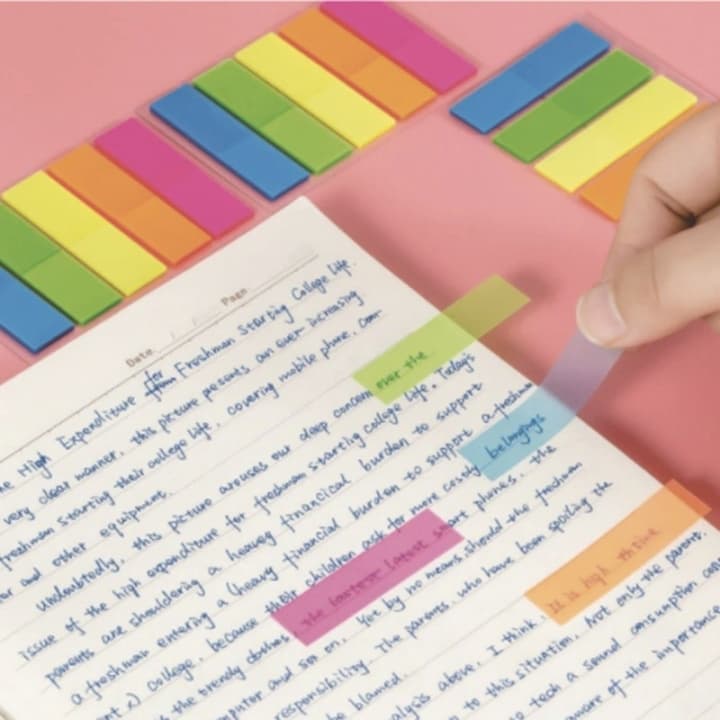 Date / / Page
The High Expenditure for Freshman Starting College Life
very clear manner, this picture presents an ever-increasing
freshman starting their college life, covering mobile phone, com
and other equipment. over the
undoubtedly, this picture arouses our deep concern
issue of the high expenditure for freshman starting college life. Today's
parents are shouldering a heavy financical burden to support
a freshman entering a (heavy financial burden to support a freshman belongings
college, because their children ask for more costly
the trendy clothes, the lastest latest smart phones, the
and so on. Yet by no means should the freshman
responsibility. The parents, who have been spoiling the
be blamed.
above, I think, It is high time
to this situation. Not only the parent
tech a sound consumption
of the importance